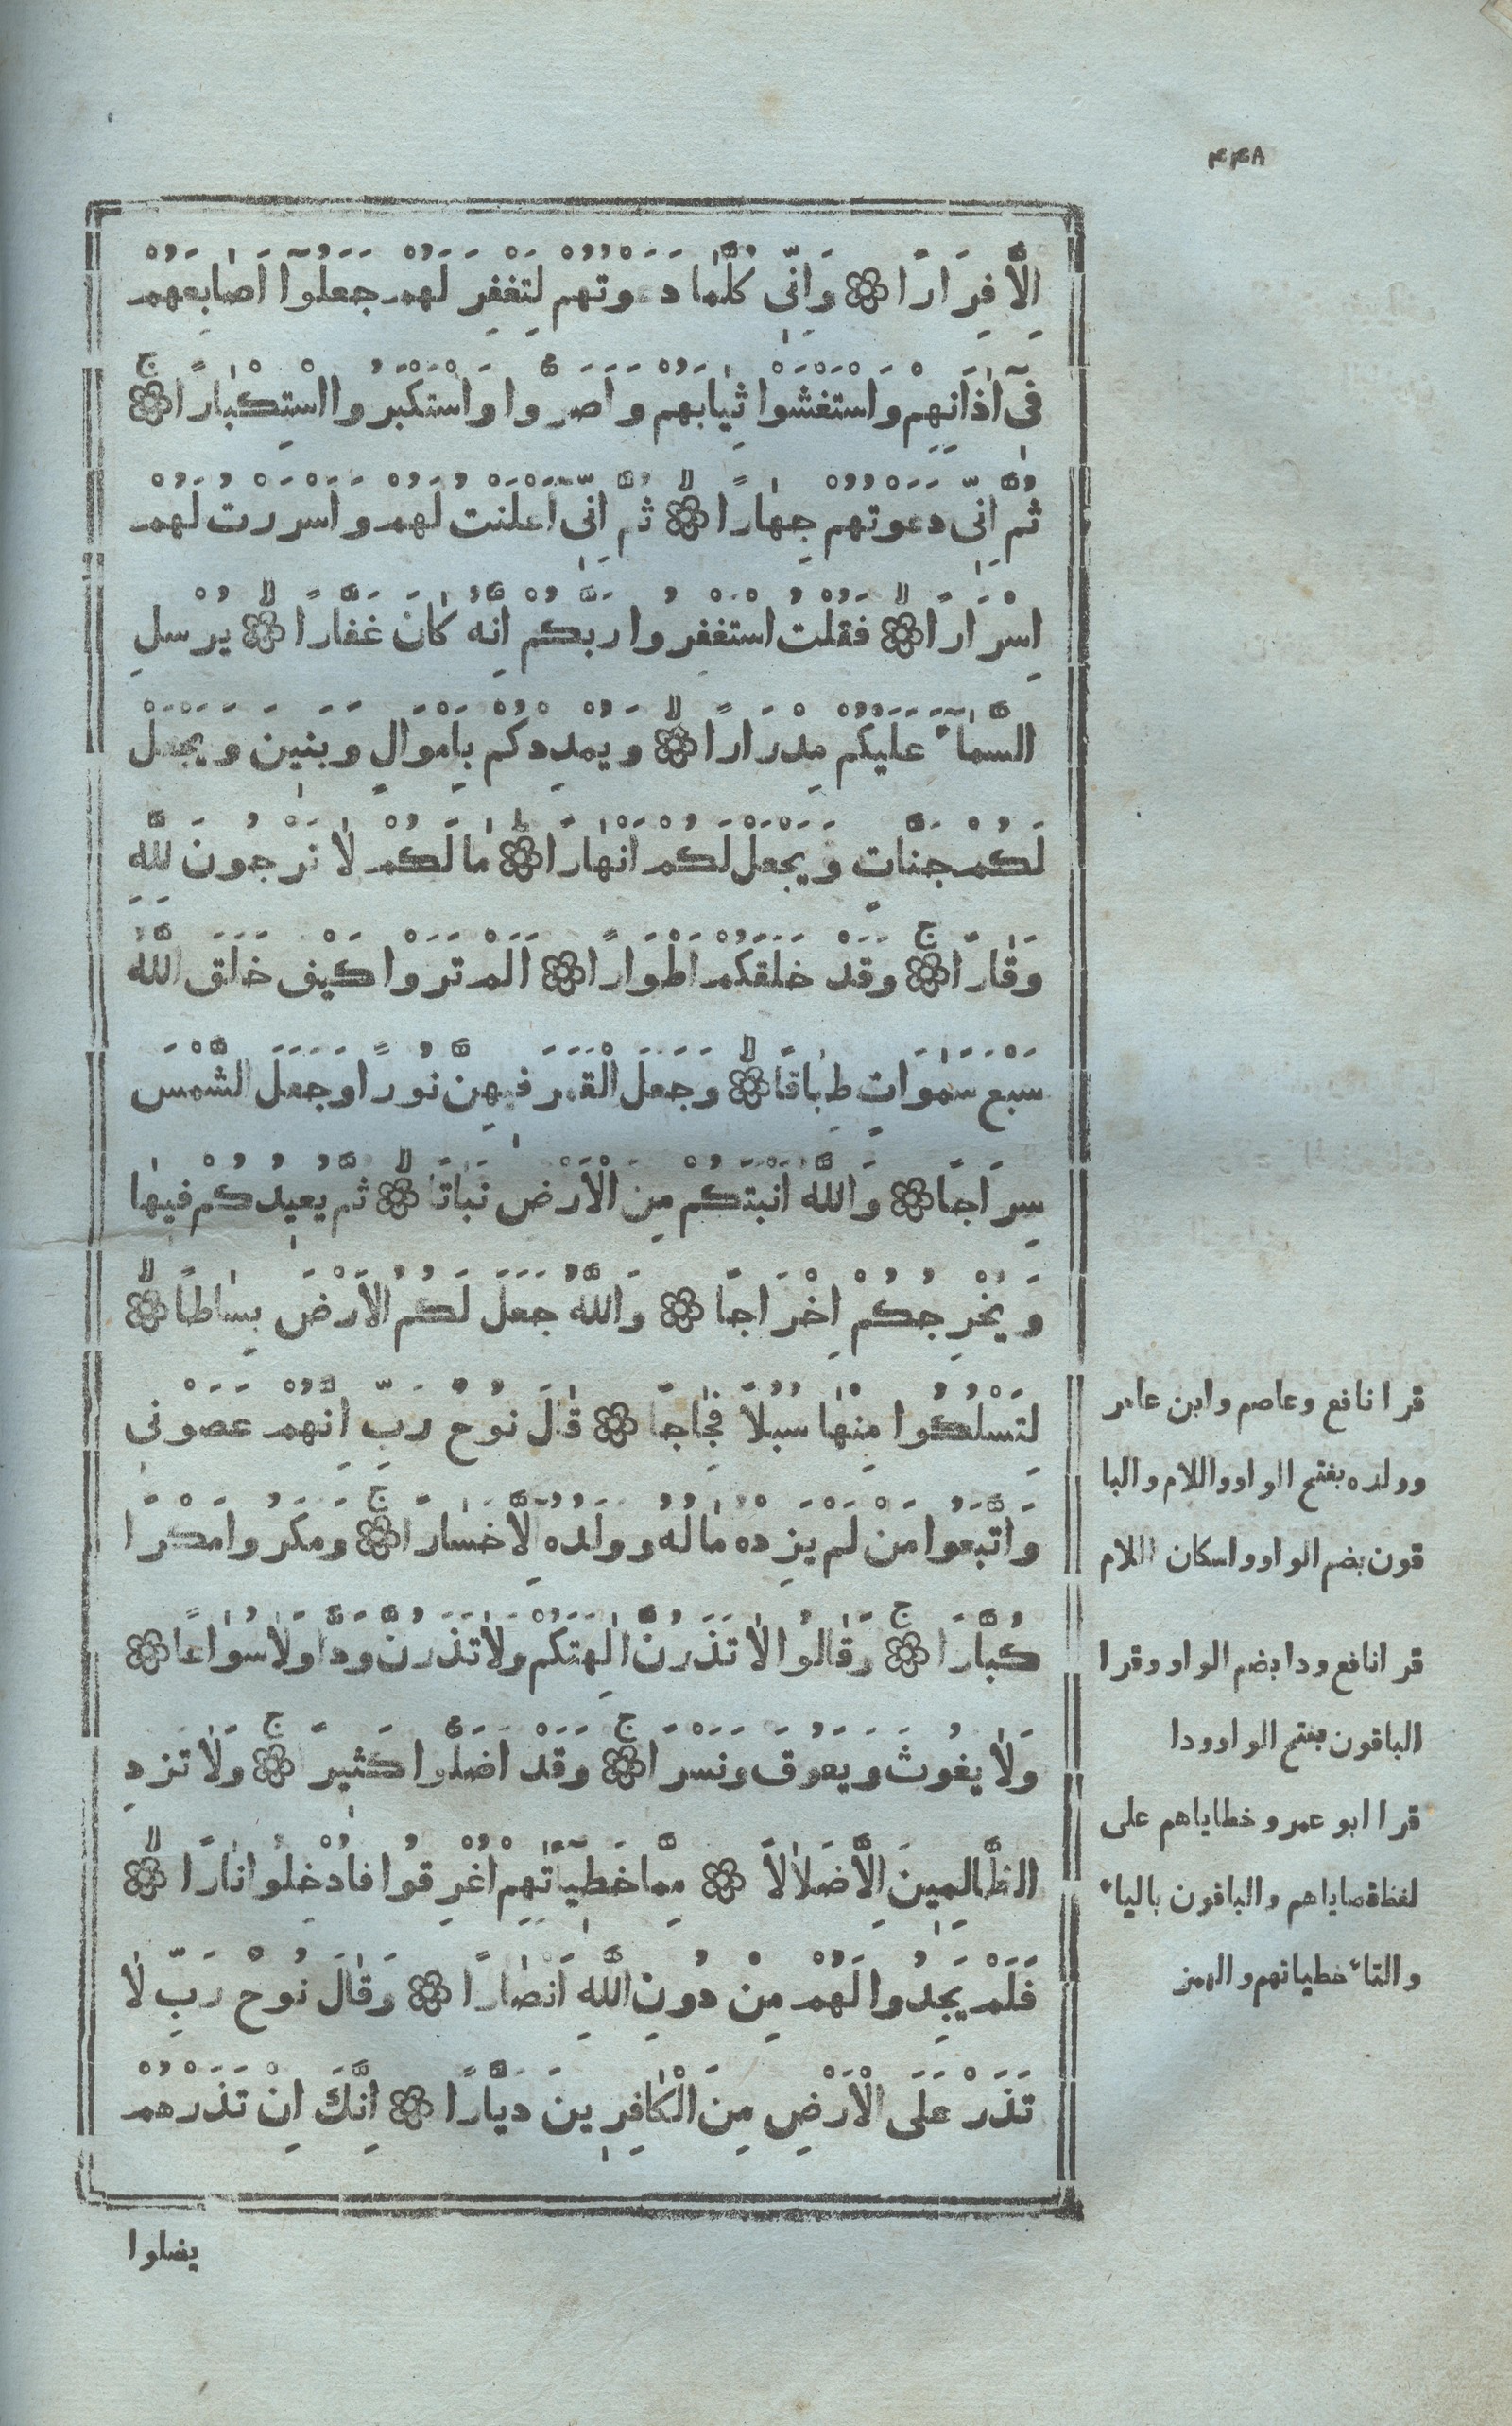 ۴۴۸
اِلَّا فِرَارًا ۞ وَاِنّٖى كُلَّمٰا دَعَوْتُهُمْ لِتَغْفِرَ لَهُمْ جَعَلُوٓا اَصٰابِعَهُمْ
فٖىٓ اٰذَانِهِمْ وَاسْتَغْشَوْا ثِيٰابَهُمْ وَاَصَرُّوا وَاسْتَكْبَرُوا اسْتِكْبٰارًاۚ ۞
ثُمَّ اِنّٖى دَعَوْتُهُمْ جِهٰارًاۙ ۞ ثُمَّ اِنّٖى اَعْلَنْتُ لَهُمْ وَاَسْرَرْتُ لَهُمْ
اِسْرَارًاۙ ۞ فَقُلْتُ اسْتَغْفِرُوا رَبَّكُمْ اِنَّهُ كٰانَ غَفَّارًاۙ ۞ يُرْسِلِ
السَّمٰآءَ عَلَيْكُمْ مِدْرَارًاۙ ۞ وَيُمْدِدْكُمْ بِاَمْوَالٍ وَبَنٖينَ وَيَجْعَلْ
لَكُمْ جَنَّاتٍ وَيَجْعَلْ لَكُمْ اَنْهٰارًاؕ ۞ مٰا لَكُمْ لٰا تَرْجُونَ لِلّٰهِ
وَقٰارًاۚ ۞ وَقَدْ خَلَقَكُمْ اَطْوَارًا ۞ اَلَمْ تَرَوْا كَيْفَ خَلَقَ اللّٰهُ
سَبْعَ سَمٰوَاتٍ طِبٰاقًاۙ ۞ وَجَعَلَ الْقَمَرَ فٖيهِنَّ نُورًا وَجَعَلَ الشَّمْسَ
سِرَاجًا ۞ وَاللّٰهُ اَنْبَتَكُمْ مِنَ الْاَرْضِ نَبٰاتًاۙ ۞ ثُمَّ يُعٖيدُكُمْ فٖيهٰا
وَيُخْرِجُكُمْ اِخْرَاجًا ۞ وَاللّٰهُ جَعَلَ لَكُمُ الْاَرْضَ بِسٰاطًاۙ ۞
لِتَسْلُكُوا مِنْهٰا سُبُلًا فِجٰاجًا ۞ قٰالَ نُوحٌ رَبِّ اِنَّهُمْ عَصَوْنٖى
وَاتَّبَعُوا مَنْ لَمْ يَزِدْهُ مٰالُهُ وَوَلَدُهُ اِلَّا خَسٰارًاۚ ۞ وَمَكَرُوا مَكْرًا
كُبَّارًاۚ ۞ وَقٰالُوا لٰا تَذَرُنَّ اٰلِهَتَكُمْ وَلٰا تَذَرُنَّ وَدًّا وَلٰا سُوٰاعًا ۞
وَلٰا يَغُوثَ وَيَعُوقَ وَنَسْرًاۚ ۞ وَقَدْ اَضَلُّوا كَثٖيرًاۚ ۞ وَلٰا تَزِدِ
الظَّالِمٖينَ اِلَّا ضَلٰالًا ۞ مِمَّا خَطٖيٓـَٔاتِهِمْ اُغْرِقُوا فَاُدْخِلُوا نٰارًاۙ ۞
فَلَمْ يَجِدُوا لَهُمْ مِنْ دُونِ اللّٰهِ اَنْصٰارًا ۞ وَقٰالَ نُوحٌ رَبِّ لٰا
تَذَرْ عَلَى الْاَرْضِ مِنَ الْكٰافِرٖينَ دَيَّارًا ۞ اِنَّكَ اِنْ تَذَرْهُمْ
يضلوا
قرا نافع وعاصم وابن عامر
وولده بفتح الواو واللام والبا
قون بضم الواو واسكان اللام
قرا نافع ودا بضم الواو وقرا
الباقون بفتح الواو ودا
قرا ابو عمرو خطاياهم على
والباقون بالياء
والتاء خطياتهم والهمز